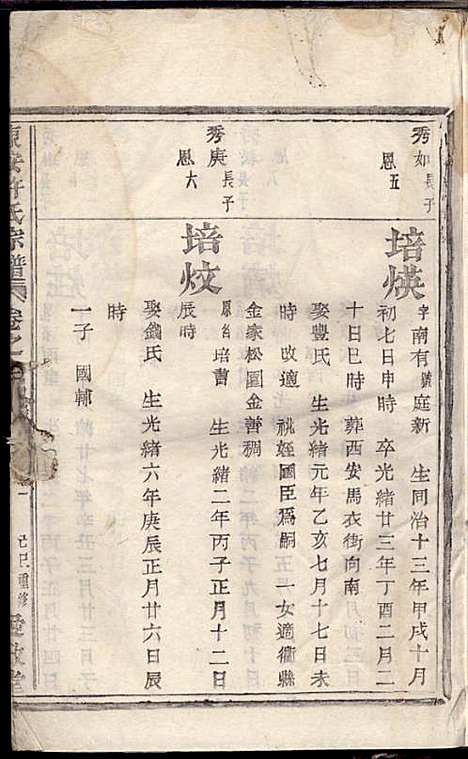 秀如長子
恩五
培煐
字南有號庭新　生同治十三年甲戌十月
初七日申時　卒光緒廿三年丁酉二月二
十日巳時　葬西安馬衣街向南
娶豐氏　生光緒元年乙亥七月十七日未
時　改適　祧姪國臣爲嗣　一女適衢縣
金家松園金善稠
秀庚長子
恩六
培炆
原名培曹　生光緒二年丙子正月十二日
辰時
娶錢氏　生光緒六年庚辰正月廿六日辰
時
一子　國輔
許氏宗譜　卷之
己巳重修